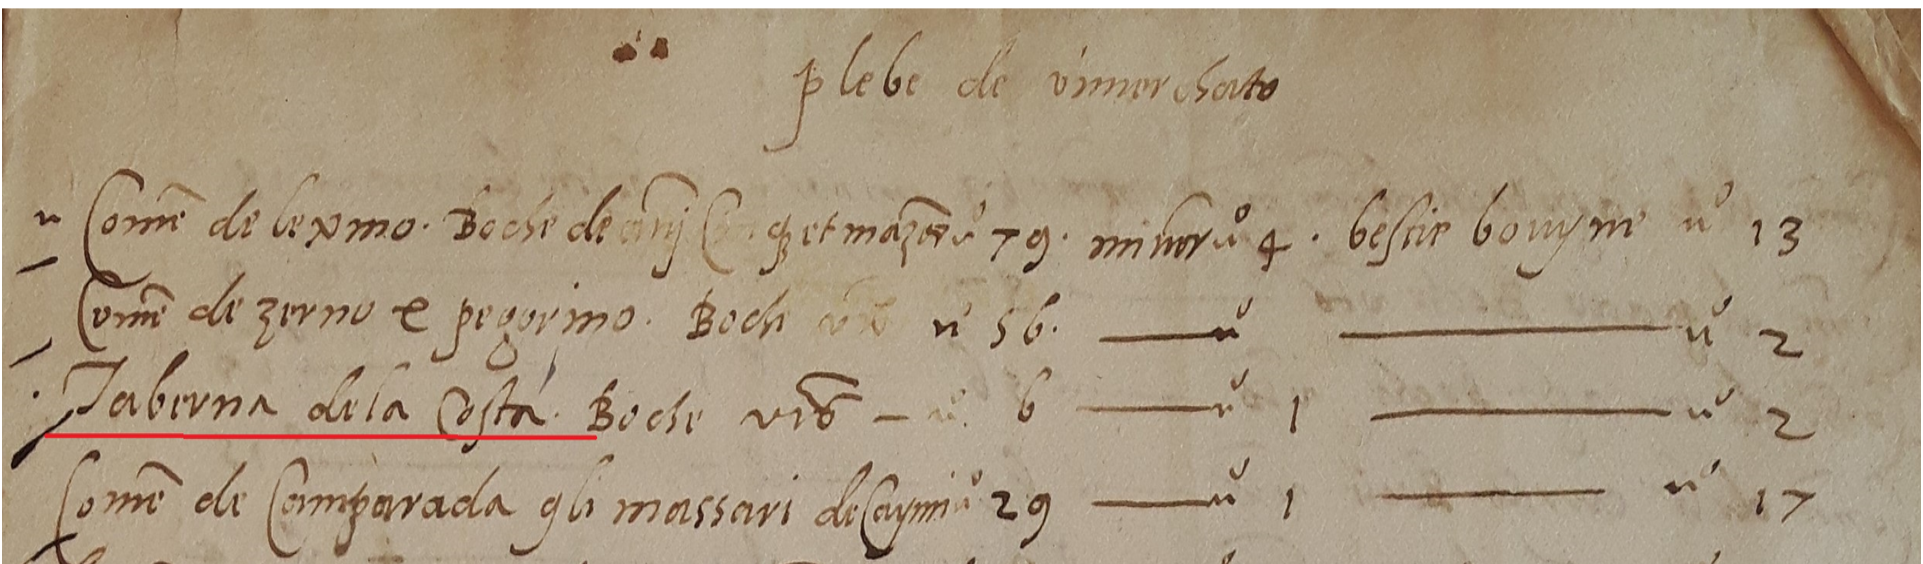 plebe de vimerchato
Comē de lexmo. Boche de anj Cinqȝ et mazor nº 79. minor nº 4. bestie bouyne nº 13
Comē de zerno e pegorino. Boche nº 56. — nº — nº 2
Taberna de la Costa. Boche vtō — nº. 6 — nº 1 — nº 2
Comē de Camparada gli massari de nº 29 — nº 1 — nº 17